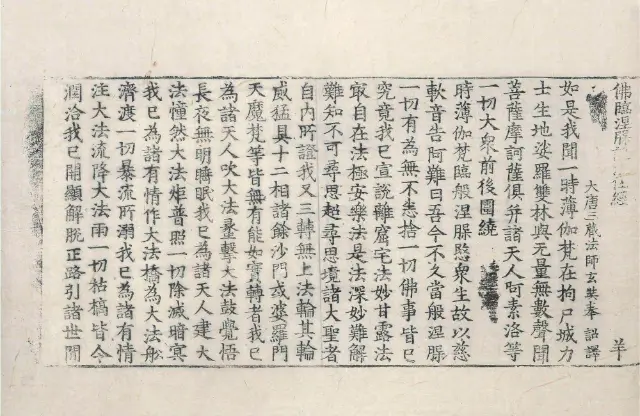 佛臨涅槃法住經
大唐三藏法師玄奘奉 詔譯 羊
如是我聞一時薄伽梵在拘尸城力
士生地娑羅雙林與无量無數聲聞
菩薩摩訶薩俱幷諸天人阿素洛等
一切大衆前後圍繞
時薄伽梵臨般涅槃愍衆生故以慈
軟音告阿難曰吾今不久當般涅槃
一切有為無不悉捨一切佛事皆已
究竟我已宣說離窟宅法妙甘露法
最自在法極安樂法是法深妙難解
難知不可尋思超尋思境諸大聖者
自內所證我又三轉無上法輪其輪
威猛具十二相諸餘沙門或婆羅門
天魔梵等皆無有能如實轉者我已
為諸天人吹大法䗍擊大法鼓覺悟
長夜無明睡眠我已為諸天人建大
法幢然大法炬普照一切除滅暗冥
我已為諸有情作大法橋為大法船
濟渡一切暴流所溺我已為諸有情
注大法流降大法雨一切枯槁皆令
潤洽我已開顯解脫正路引諸世間